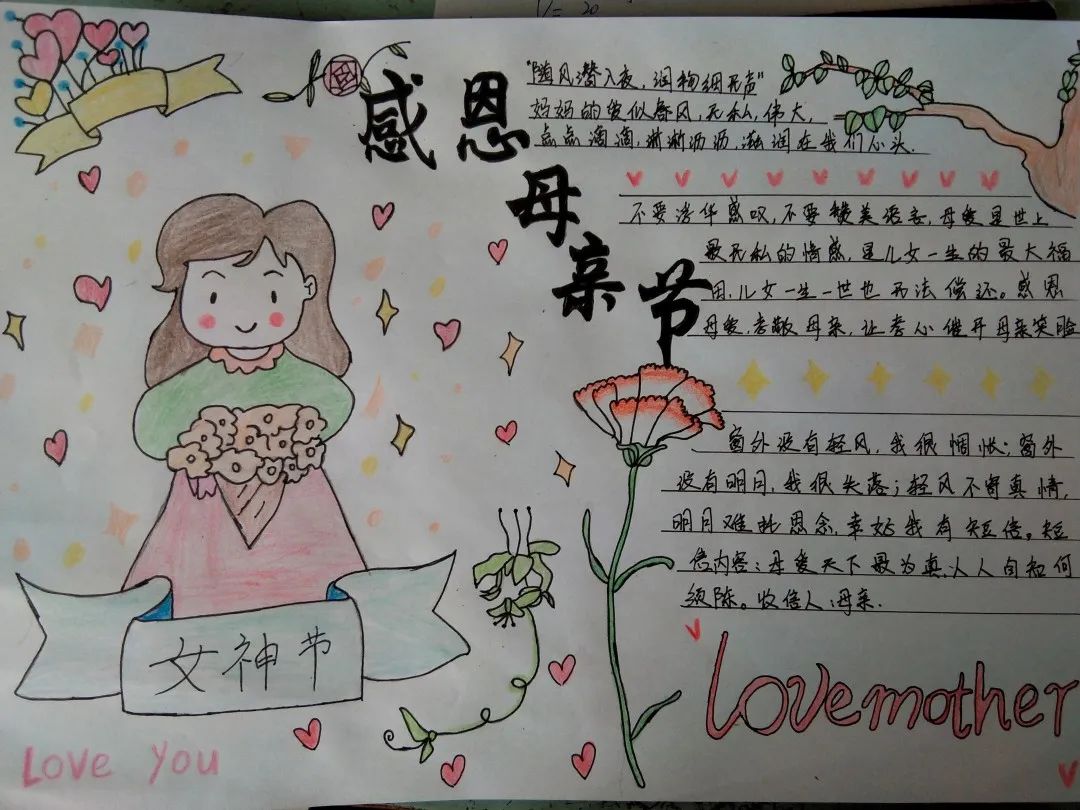 感恩母亲节
"随风潜入夜，润物细无声"
妈妈的爱似春风，无私，伟大，
点点滴滴，淅淅沥沥，滋润在我们心头.
不要浮华感叹，不要赞美语言，母爱是世上
最无私的情感，是儿女一生的最大福
田，儿女一生一世也无法偿还。感恩
母爱，孝敬母亲，让孝心催开母亲笑脸
窗外没有轻风，我很惆怅；窗外
没有明月，我很失落；轻风不寄真情，
明月难耐思念，幸好我有短信。短
信内容：母爱天下最为真，人人自知何
须陈。收信人：母亲.
女神节
Love You
Love mother